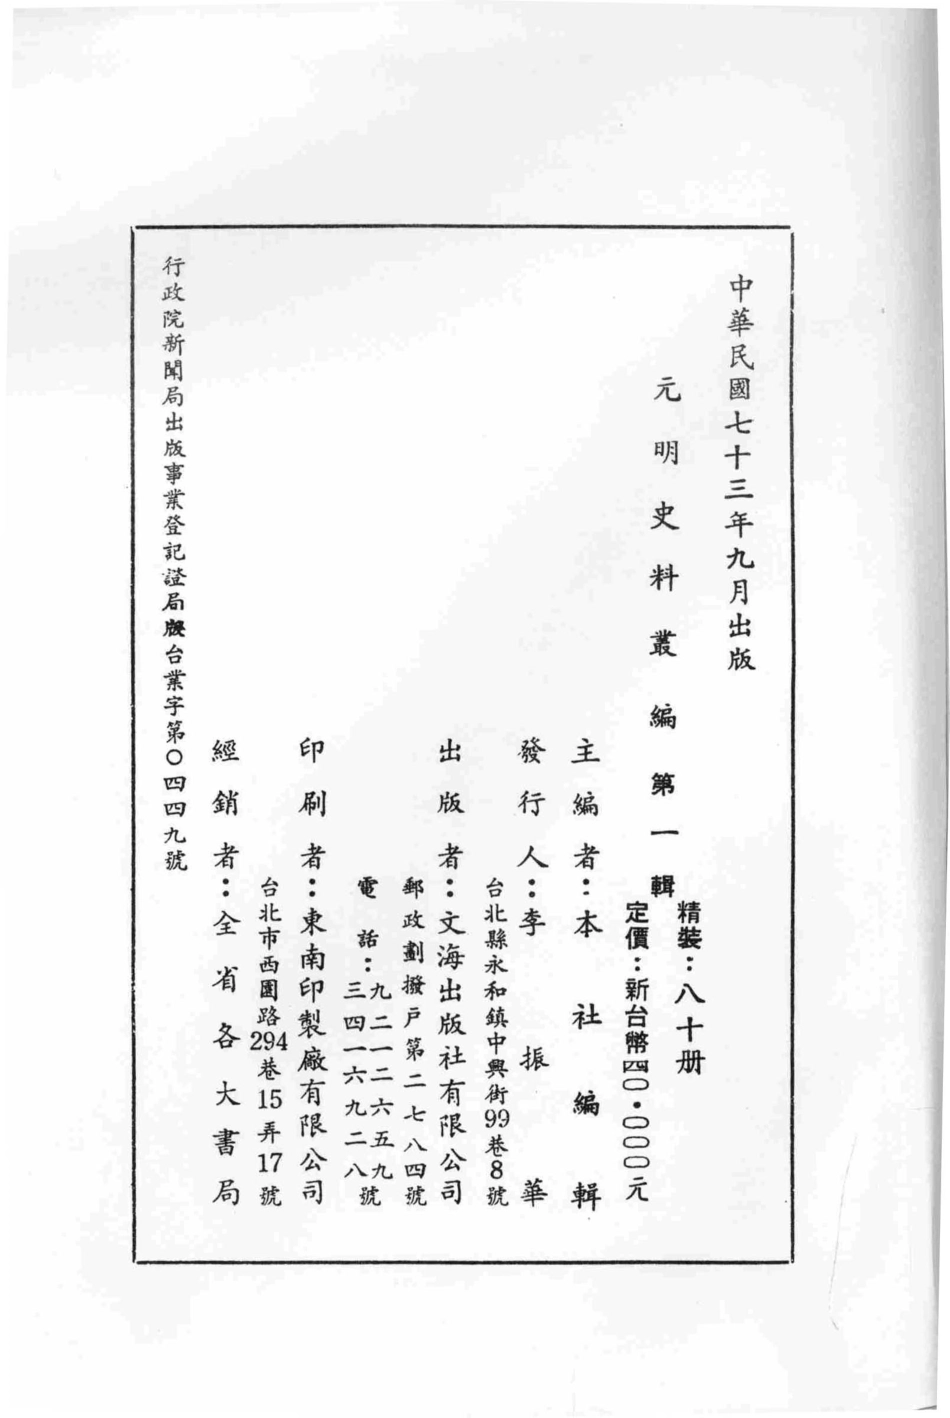 中華民國七十三年九月出版
元明史料叢編第一輯
精裝：八十册
定價：新台幣四〇・〇〇〇元
主編者：本社編輯
發行人：李振華
台北縣永和鎮中興街99巷8號
出版者：文海出版社有限公司
郵政劃撥戶第二七八四號
電話：九二一二六五九號
三四一六九二八
印刷者：東南印製廠有限公司
台北市西園路294巷15弄17號
經銷者：全省各大書局
行政院新聞局出版事業登記證局版台業字第〇四四九號